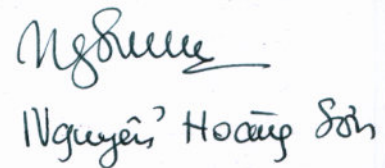 Nguyễn Hoàng Sơn